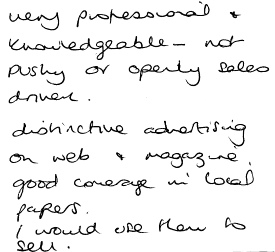 very professional &
knowledgeable – not
pushy or openly sales
driven.
distinctive advertising
on web & magazine.
good coverage in local
papers.
I would use them to
sell.